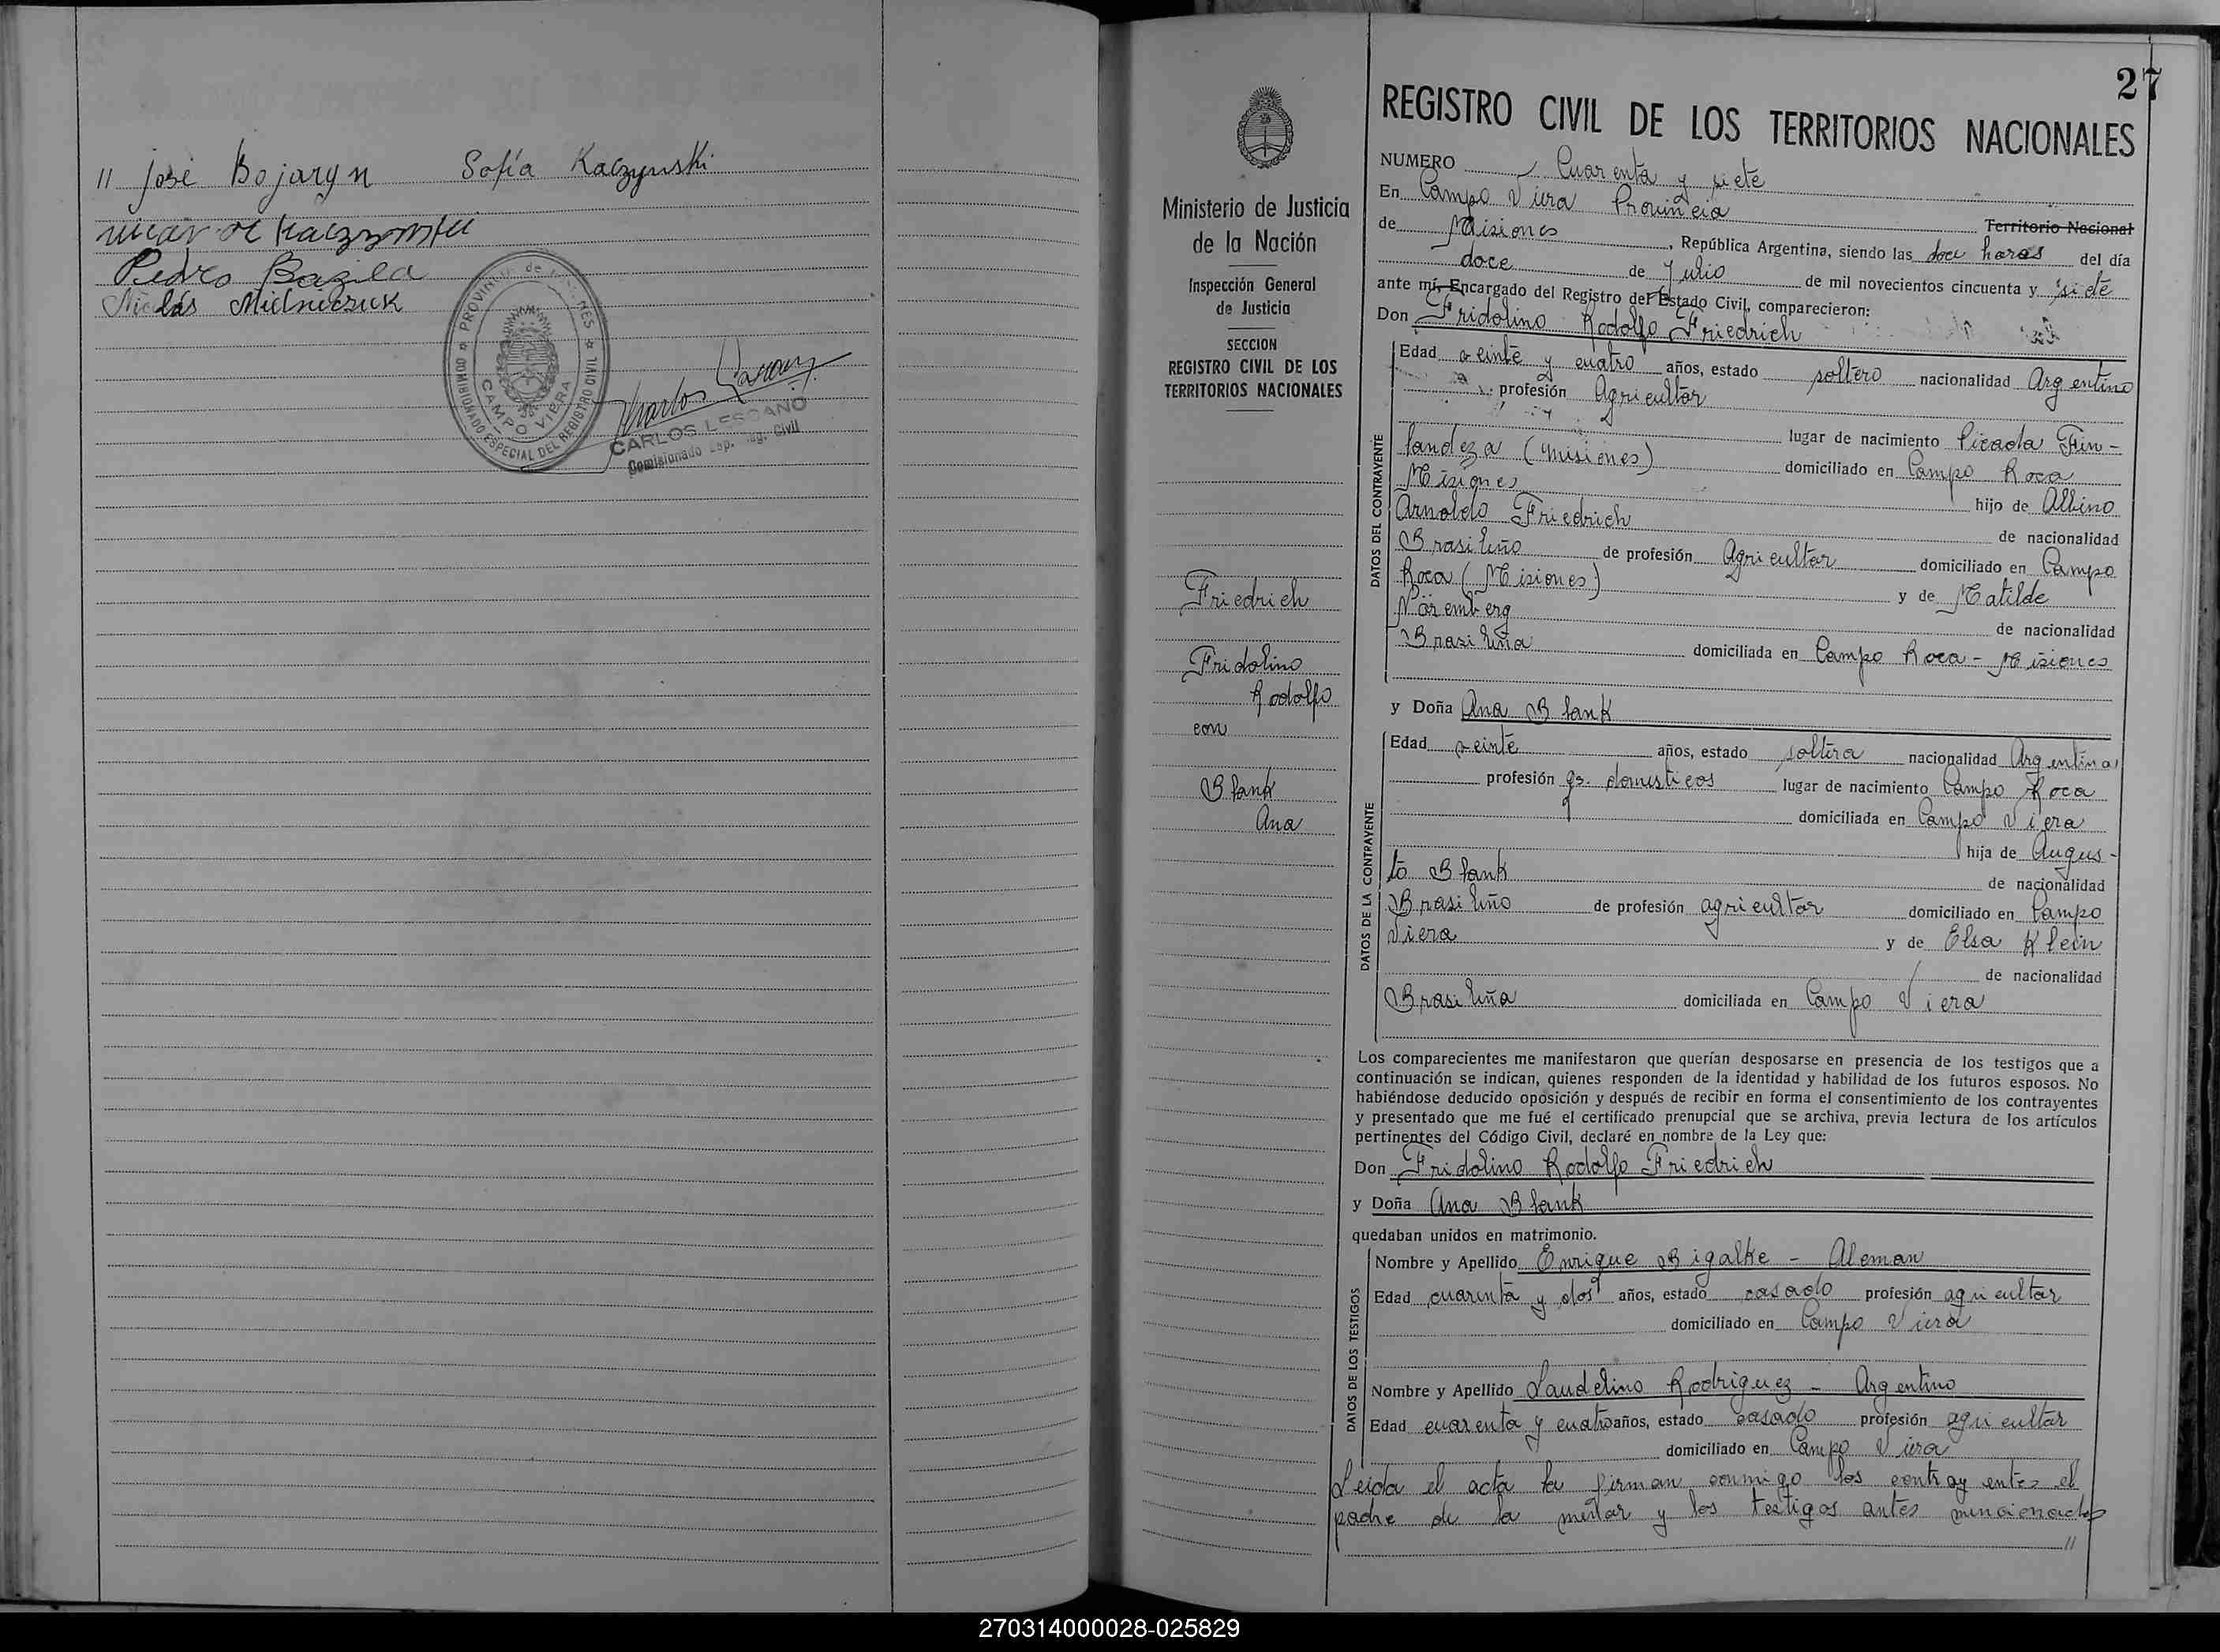 " José Bojaryn Sofía Kaczynski
Pedro Bazila
Nicolás Mielniczuk
PROVINCIA de MISIONES
COMISIONADO ESPECIAL DEL REGISTRO CIVIL
CAMPO VIERA
CARLOS LESCANO
Comisionado Esp. Reg. Civil
27
Ministerio de Justicia
de la Nación
Inspección General
de Justicia
SECCION
REGISTRO CIVIL DE LOS
TERRITORIOS NACIONALES
Friedrich
Fridolino
Rodolfo
con
Blank
Ana
REGISTRO CIVIL DE LOS TERRITORIOS NACIONALES
NUMERO Cuarenta y siete
En Campo Viera Provincia Territorio Nacional
de Misiones, República Argentina, siendo las doce horas del día
doce de Julio de mil novecientos cincuenta y siete
ante mí, Encargado del Registro del Estado Civil, comparecieron:
Don Fridolino Rodolfo Friedrich
DATOS DEL CONTRAYENTE
Edad veinte y cuatro años, estado soltero nacionalidad Argentino
profesión Agricultor
lugar de nacimiento Picada Fin-
landeza (Misiones) domiciliado en Campo Roca
Misiones hijo de Albino
Arnoldo Friedrich de nacionalidad
Brasileño de profesión Agricultor domiciliado en Campo
Roca (Misiones) y de Matilde
Noremberg de nacionalidad
Brasileña domiciliada en Campo Roca - Misiones
y Doña Ana Blank
DATOS DE LA CONTRAYENTE
Edad veinte años, estado soltera nacionalidad Argentina
profesión qs. domesticos lugar de nacimiento Campo Roca
domiciliada en Campo Viera
hija de Augus-
to Blank de nacionalidad
Brasileño de profesión agricultor domiciliado en Campo
Viera y de Elsa Klein
de nacionalidad
Brasileña domiciliada en Campo Viera
Los comparecientes me manifestaron que querían desposarse en presencia de los testigos que a
continuación se indican, quienes responden de la identidad y habilidad de los futuros esposos. No
habiéndose deducido oposición y después de recibir en forma el consentimiento de los contrayentes
y presentado que me fué el certificado prenupcial que se archiva, previa lectura de los artículos
pertinentes del Código Civil, declaré en nombre de la Ley que:
Don Fridolino Rodolfo Friedrich
y Doña Ana Blank
quedaban unidos en matrimonio.
DATOS DE LOS TESTIGOS
Nombre y Apellido Enrique Bigalke - Aleman
Edad cuarenta y dos años, estado casado profesión agricultor
domiciliado en Campo Viera
Nombre y Apellido Laudelino Rodriguez - Argentino
Edad cuarenta y cuatro años, estado casado profesión agricultor
domiciliado en Campo Viera
Leida el acta la firman conmigo los contrayentes el
padre de la menor y los testigos antes mencionados
"
270314000028-025829